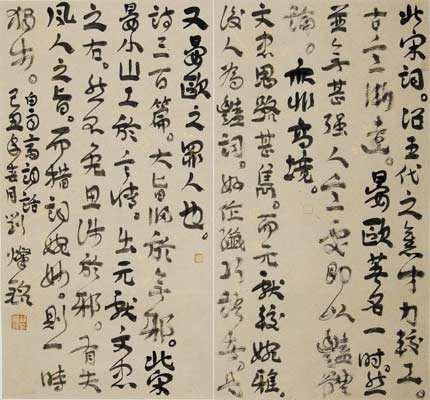 北宋詞。沿五代之舊才力較工。
古意漸遠。晏歐著名一時。然
並無甚強人意處。即以豔體
論。亦非高境。
文忠思路甚雋。而元獻較婉雅。
後人為豔詞。好作纖巧語者。是
又晏歐之罪人也。
詩三百篇。大旨歸於無邪。北宋
晏小山工於言情。出元獻文忠
之右。然不免思涉於邪。有失
風人之旨。而措詞婉妙。則一時
獨步。
白雨齋詞話
己丑春月劉燦銘